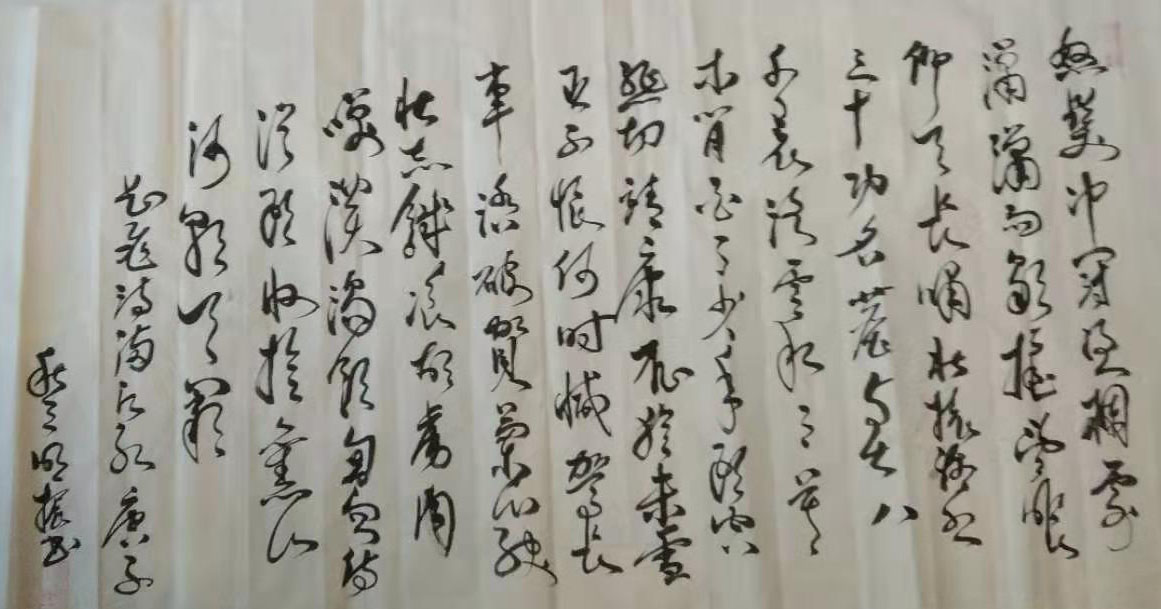 怒发冲冠凭栏处
潇潇雨歇抬望眼
仰天长啸壮怀激烈
三十功名尘与土八
千里路云和月莫
等闲白了少年头空
悲切靖康耻犹未雪
臣子恨何时憾驾长
车踏破贺兰山缺
壮志饥餐胡虏肉
笑谈渴饮匈奴待
从头收拾旧山
河朝天阙
岳飞词满江红庚子
秋 书